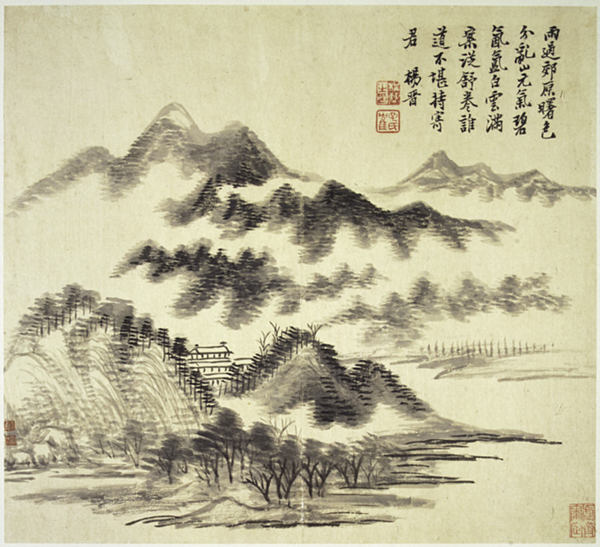 雨過郊原曙色
分亂山元氣碧
氤氳白雲滿
案從舒卷誰
道不堪持寄
君 楊晋